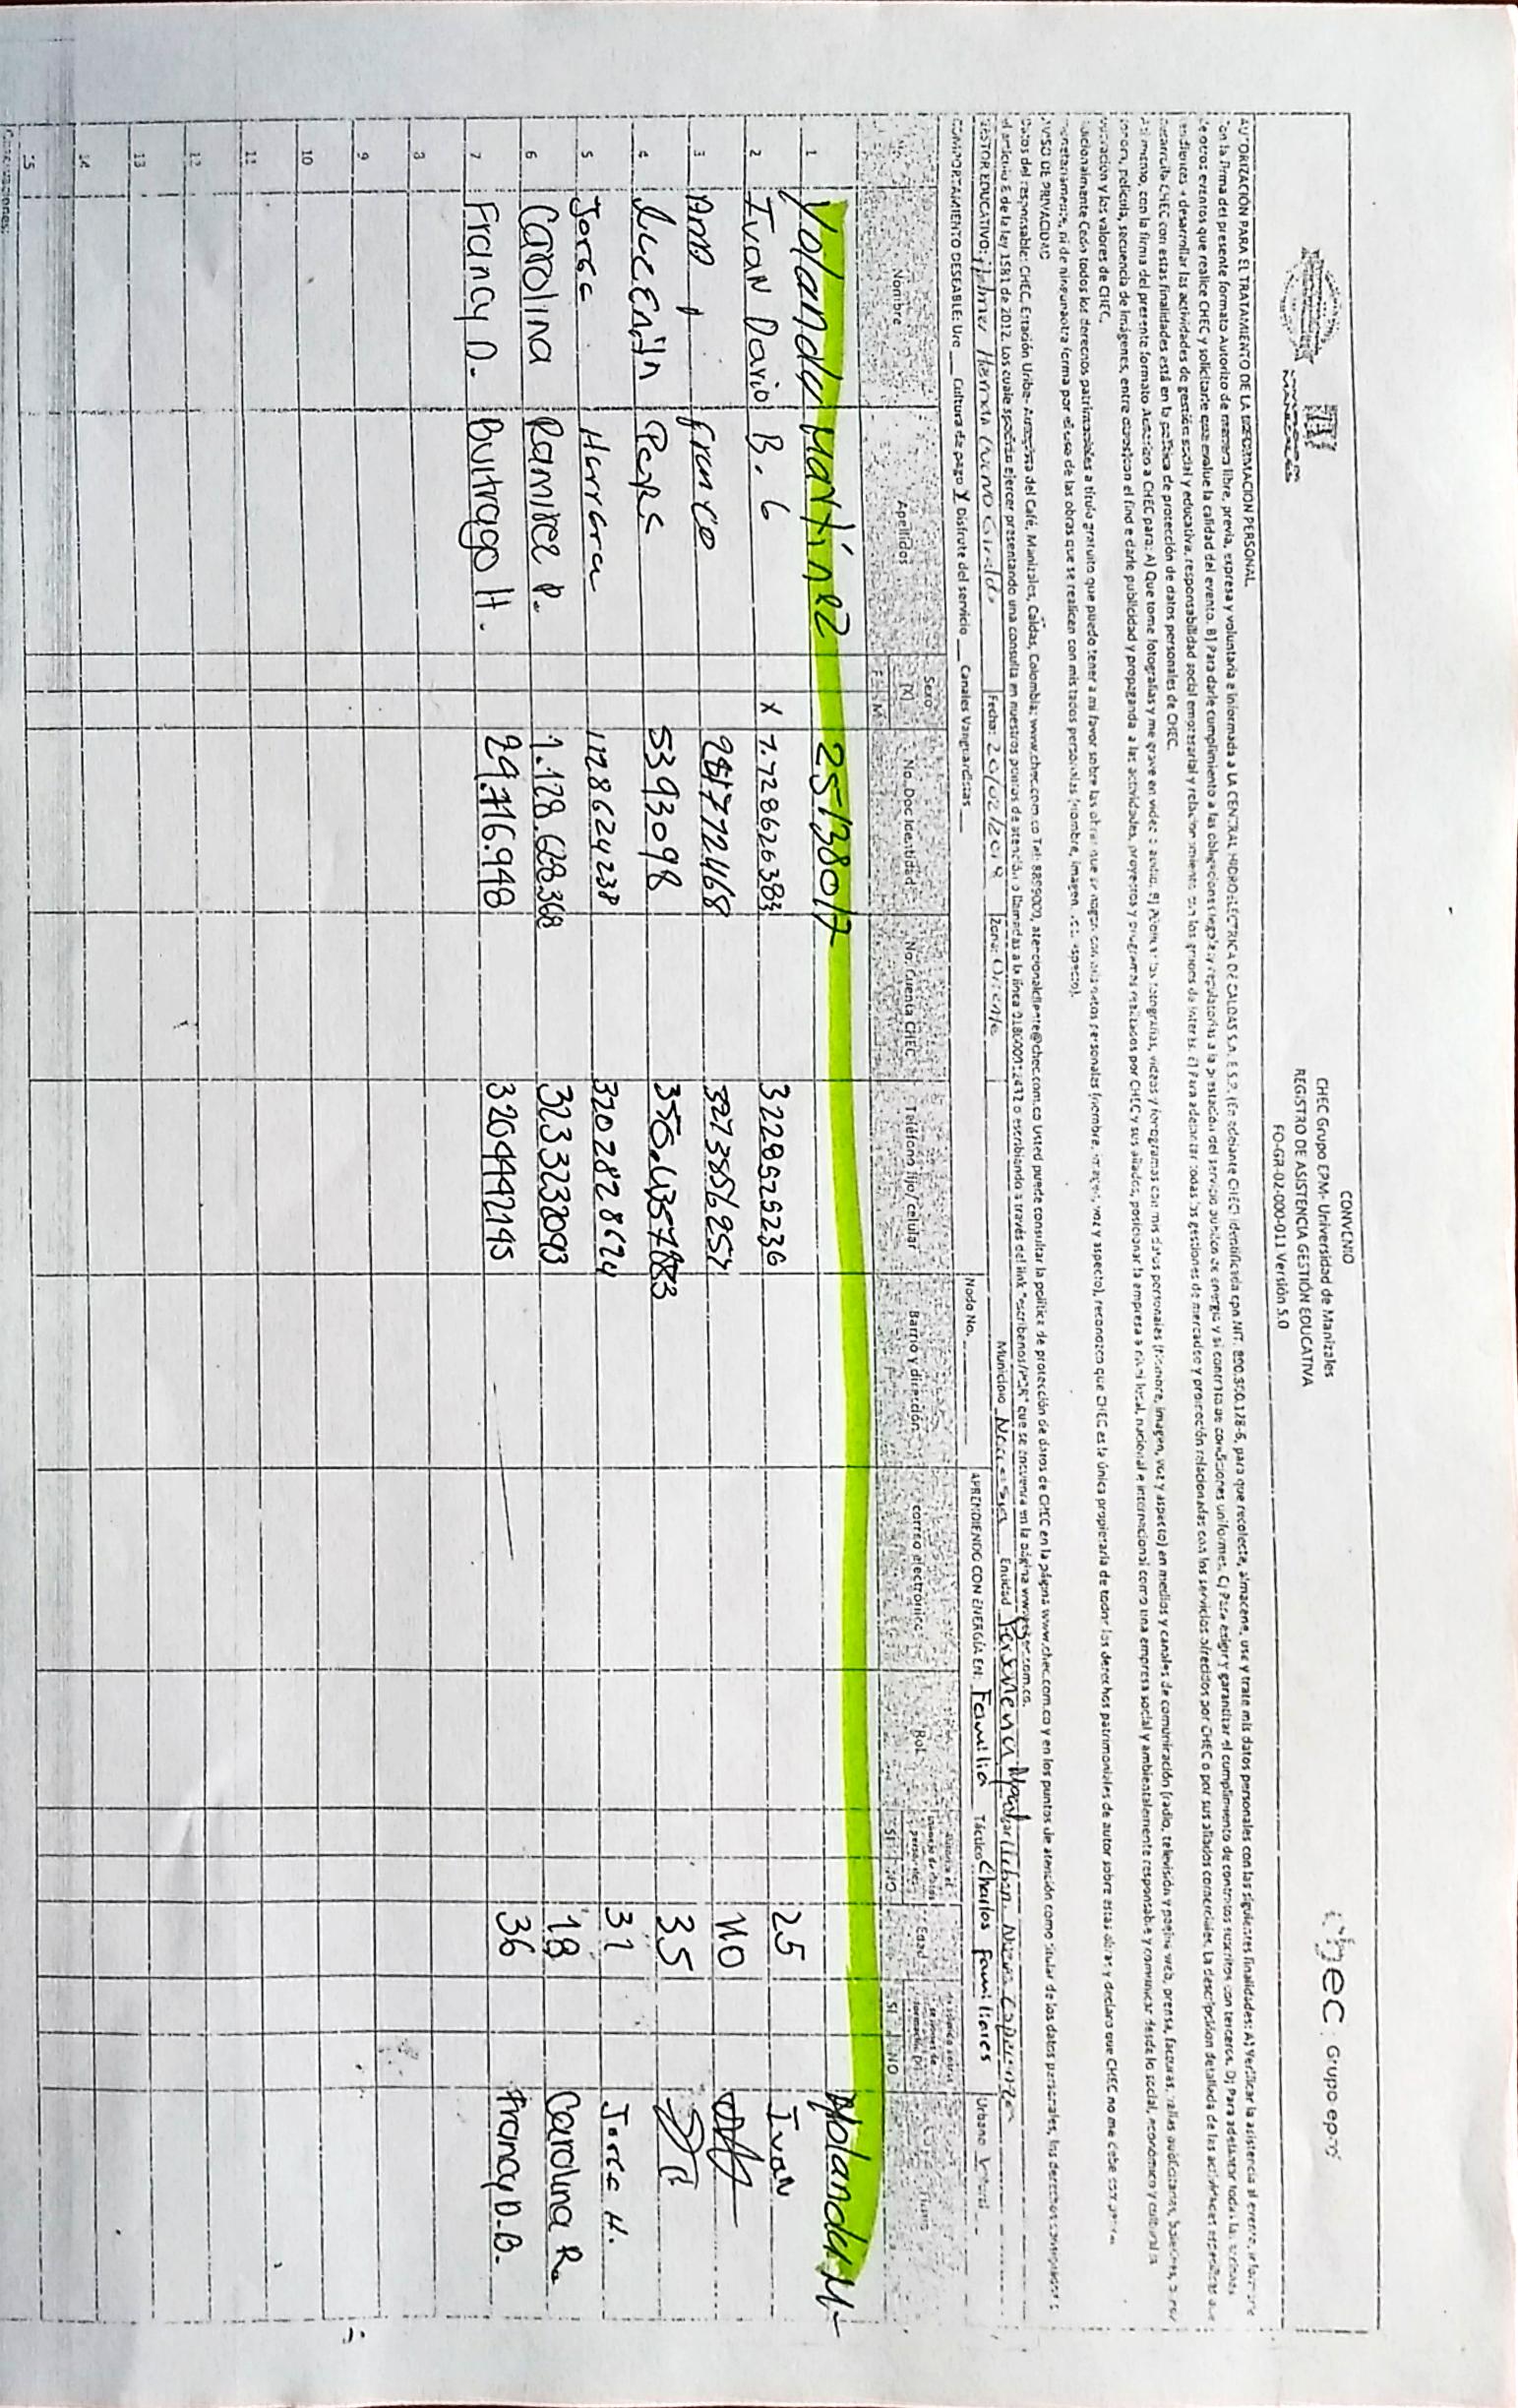 CONVENIO
CHEC Grupo EPM- Universidad de Manizales
REGISTRO DE ASISTENCIA GESTIÓN EDUCATIVA
FO-GR-02-000-011 Versión 5.0
UNIVERSIDAD DE MANIZALES
chec Grupo epm
AUTORIZACIÓN PARA EL TRATAMIENTO DE LA INFORMACION PERSONAL
Con la firma del presente formato Autorizo de manera libre, previa, expresa y voluntaria e informada a LA CENTRAL HIDROELÉCTRICA DE CALDAS S.A. E.S.P. (En adelante CHEC) identificada con NIT. 890.
para que recolecte, almacene, use y trate mis datos personales con las siguientes finalidades: A) Verificar la asistencia al evento,
de otros eventos que realice CHEC y solicitarle que evalue la calidad del evento. B) Para darle cumplimiento a las obligaciones legales y regulatorias a la prestación del servicio público de energía y al contrato de condiciones uniformes. C) Para exigir y garantizar el cumplimiento de contratos suscritos con terceros. D) Para adelantar todas las
a desarrollar las actividades de gestión social y educativa, responsabilidad social empresarial y relacionamiento con los grupos de interés. E) Para adelantar todas las gestiones de mercadeo y promoción relacionadas con los servicios ofrecidos por CHEC o por sus aliados comerciales. La descripción detallada de las actividades específicas que
desarrolla CHEC con estas finalidades está en la política de protección de datos personales de CHEC.
Asi mismo, con la firma del presente formato Autorizo a CHEC para: A) Que tome fotografías y me grave en video o audio. B)
fotografías, videos y fonogramas con mis datos personales (Nombre, imagen, voz y aspecto) en medios y canales de comunicación (radio, televisión y pagina web, prensa, facturas, vallas publicitarias,
película, secuencia de imágenes, entre
con el find e darle publicidad y propaganda a las actividades, proyectos y programas realizados por CHEC y sus aliados, posicionar la empresa a nivel local, nacional e internacional como una empresa social y ambientalemente responsable y comunicar desde lo social, económico y cultural la
y los valores de CHEC.
Adicionalmente Cedo todos los derechos patrimoniales a título gratuito que puedo tener a mi favor sobre las obras que se hagan con mis datos personales (nombre, imagen, voz y aspecto), reconozco que CHEC es la única propietaria de todos los derechos patrimoniales de autor sobre estas obras y declaro que CHEC no me debe
ni de ninguna otra forma por el uso de las obras que se realicen con mis datos personales (nombre, imagen, voz aspecto).
AVISO DE PRIVACIDAD
Datos del responsable: CHEC. Estación Uribe- Autopista del Café, Manizales, Caldas, Colombia; www.chec.com.co Tel: 8899000, atencionalcliente@chec.com.co Usted puede consultar la política de protección de datos de CHEC en la página www.chec.com.co y en los puntos de atención como titular de los datos personales, los derechos consagrados
el artículo 8 de la ley 1581 de 2012. Los cuale spodrán ejercer presentando una consulta en nuestros puntos de atención o llamadas a la línea 018000912432 o escribiendo a través del link "escribenos/PQR" que se encuentra en la página www.chec.com.co.
GESTOR EDUCATIVO: Fecha: 20/02/2019 Zona: Oriente Municipio Entidad
COMPORTAMIENTO DESEABLE: Uso __ Cultura de pago X Disfrute del servicio __ Canales Vanguardistas __ Nodo No. APRENDIENDO CON ENERGÍA EN: Familia Táctico Charlas familiares Urbano X Rural
Nombre Apellidos Sexo (X) F M No. Doc Identidad No. Cuenta CHEC Teléfono fijo/celular Barrio y dirección correo electrónico Rol SI NO Edad SI NO Firma
1 Yolanda Martínez 25138017 Yolanda M
2 Ivan Dario B. G X 1.128626383 3228525236 25 Ivan
3 Ana Franco 3273856257 40
4 5393098 35
5 Jorge Herrera 1128624238 3202828624 31 Jorge H.
6 Carolina Ramirez P. 1.128.628.368 3233232093 18 Carolina R.
7 Francy D. Buitrago H. 29.716.948 3204492195 36 Francy D.B.
8
9
10
11
12
13
14
15
Observaciones: